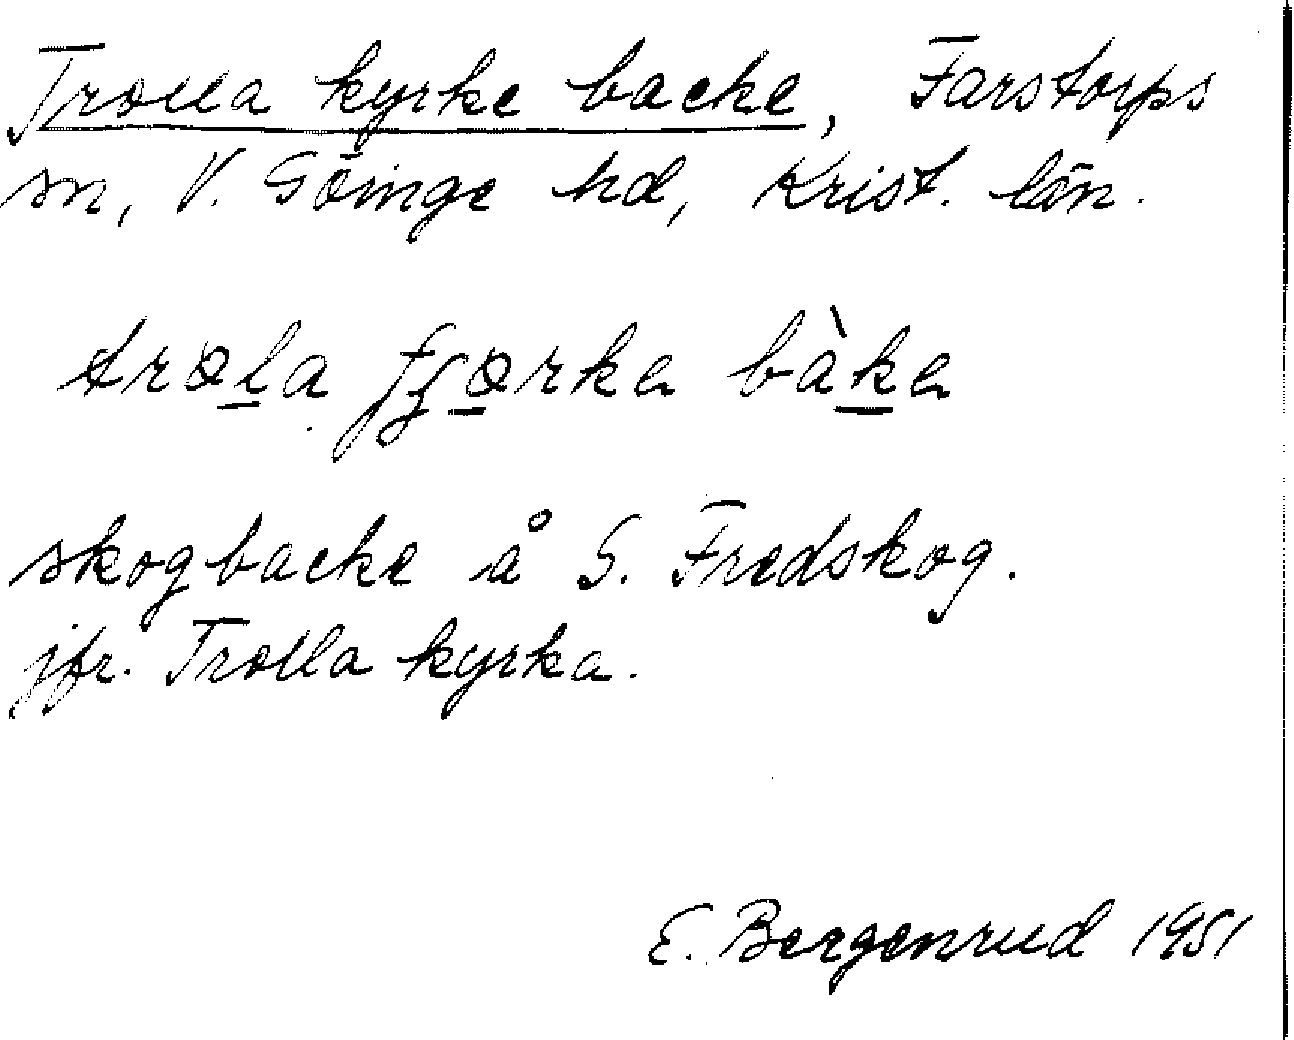 Trolla kyrke backe, Farstorps
sn, V. Göinge hd, Krist. län.
bàka
skogbacke å S. Fredskog.
jfr. Trolla kyrka.
E. Bergenrud 1951